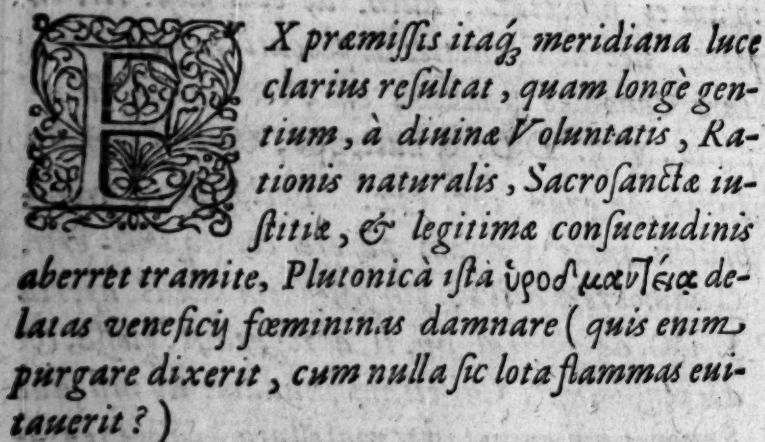 EX præmissis itaq́; meridiana luce
clarius resultat, quam longè gen-
tium, à diuinæ Voluntatis, Ra-
tionis naturalis, Sacrosanctæ iu-
stitiæ, & legitimæ consuetudinis
aberret tramite, Plutonicà ista ὑροδμαντείᾳ de-
latas veneficij fœmininas damnare (quis enim
purgare dixerit, cum nulla sic lota flammas eui-
tauerit?)